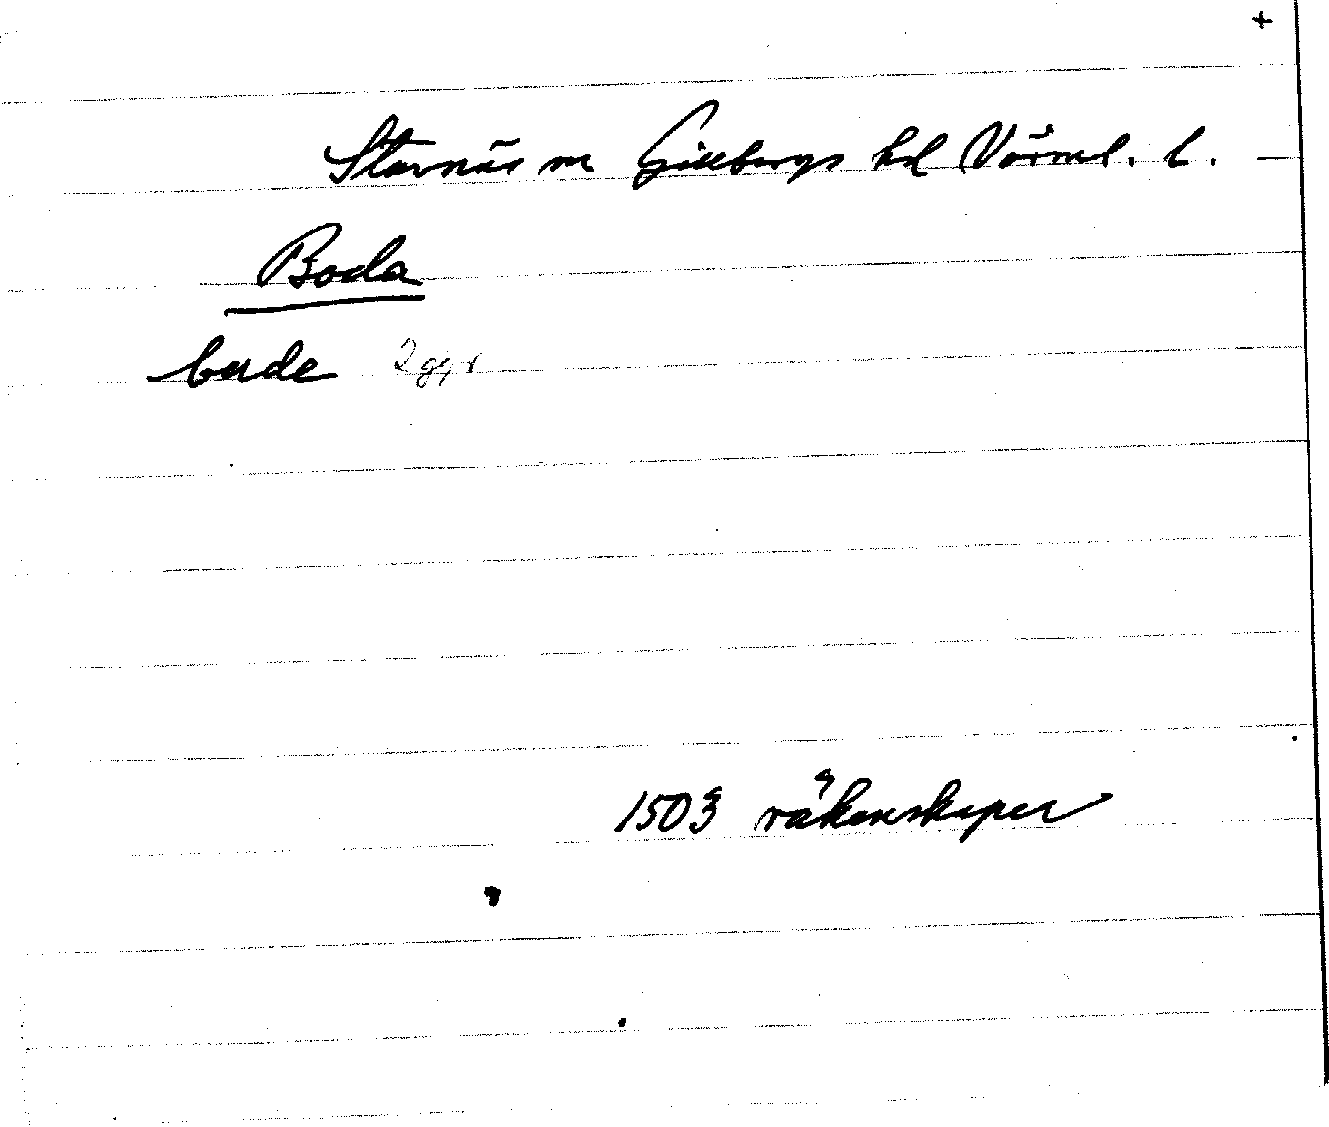 +
Stavnäs sn Gillbergs hd Värml. l.
Boda
bode 2 ggr
1503 räkenskaper